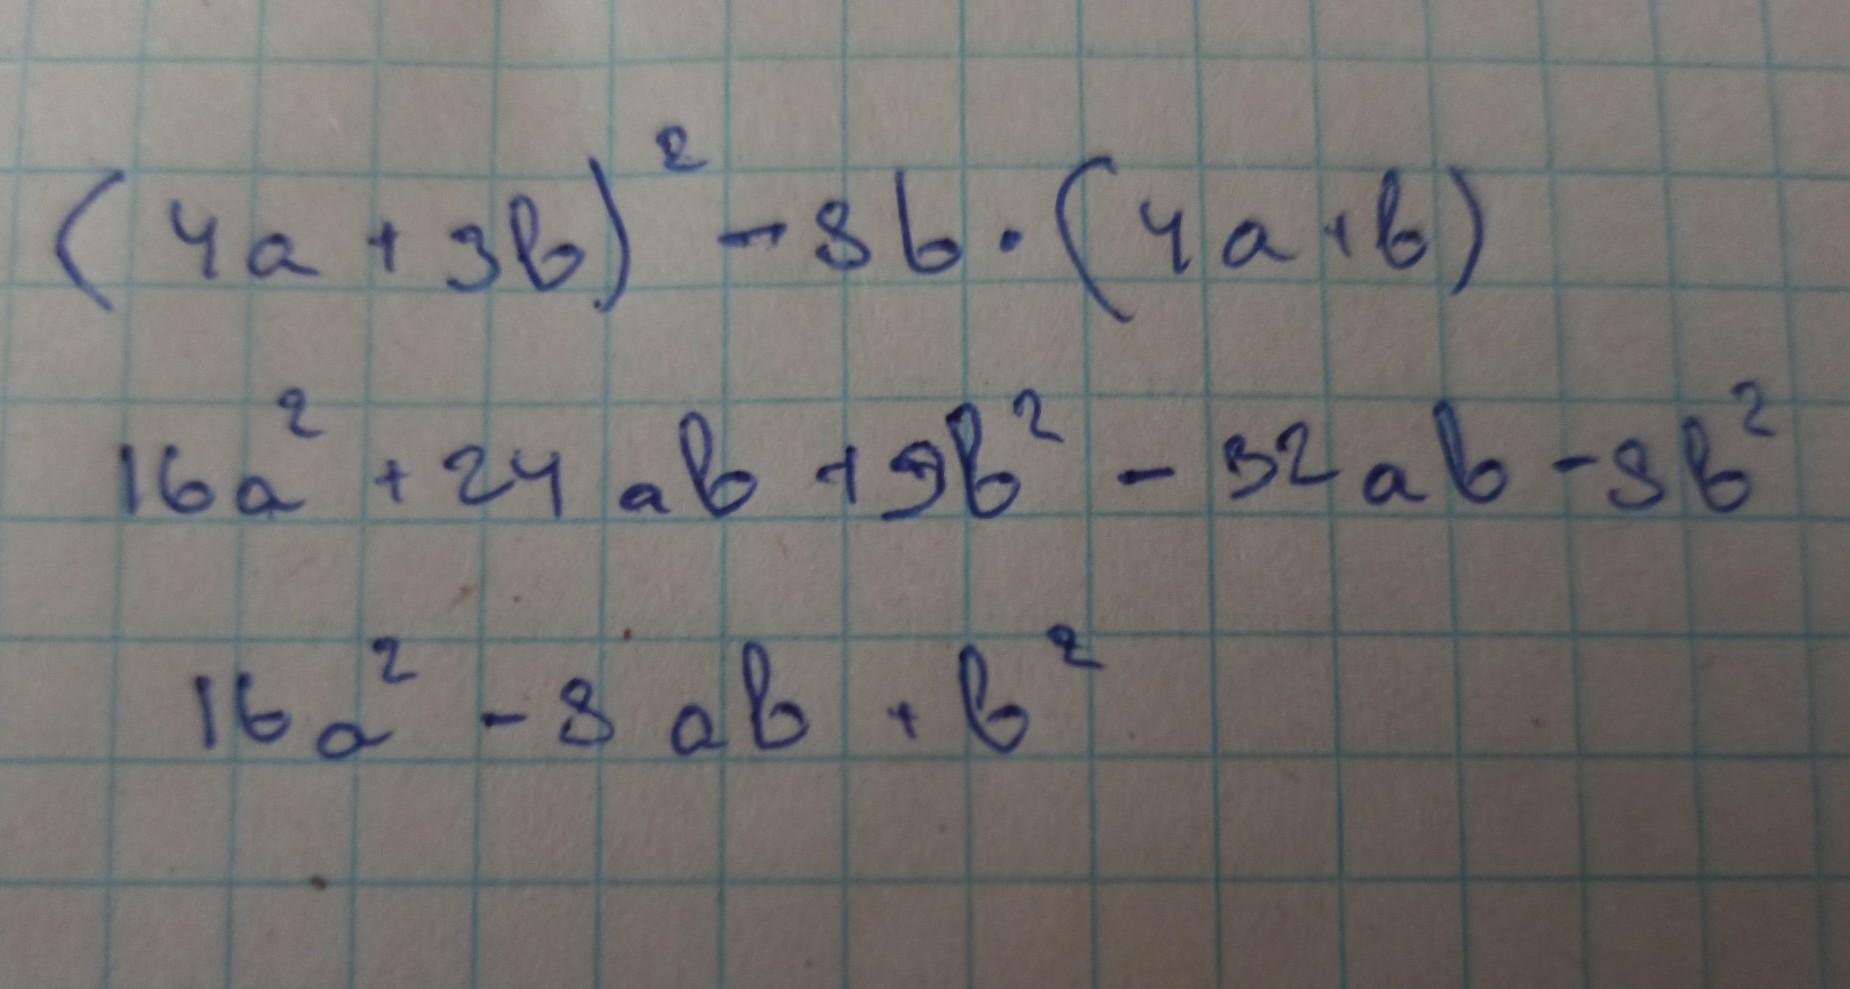 (4a + 3b)² - 8b · (4a + b)
16a² + 24ab + 9b² - 32ab - 8b²
16a² - 8ab + b²